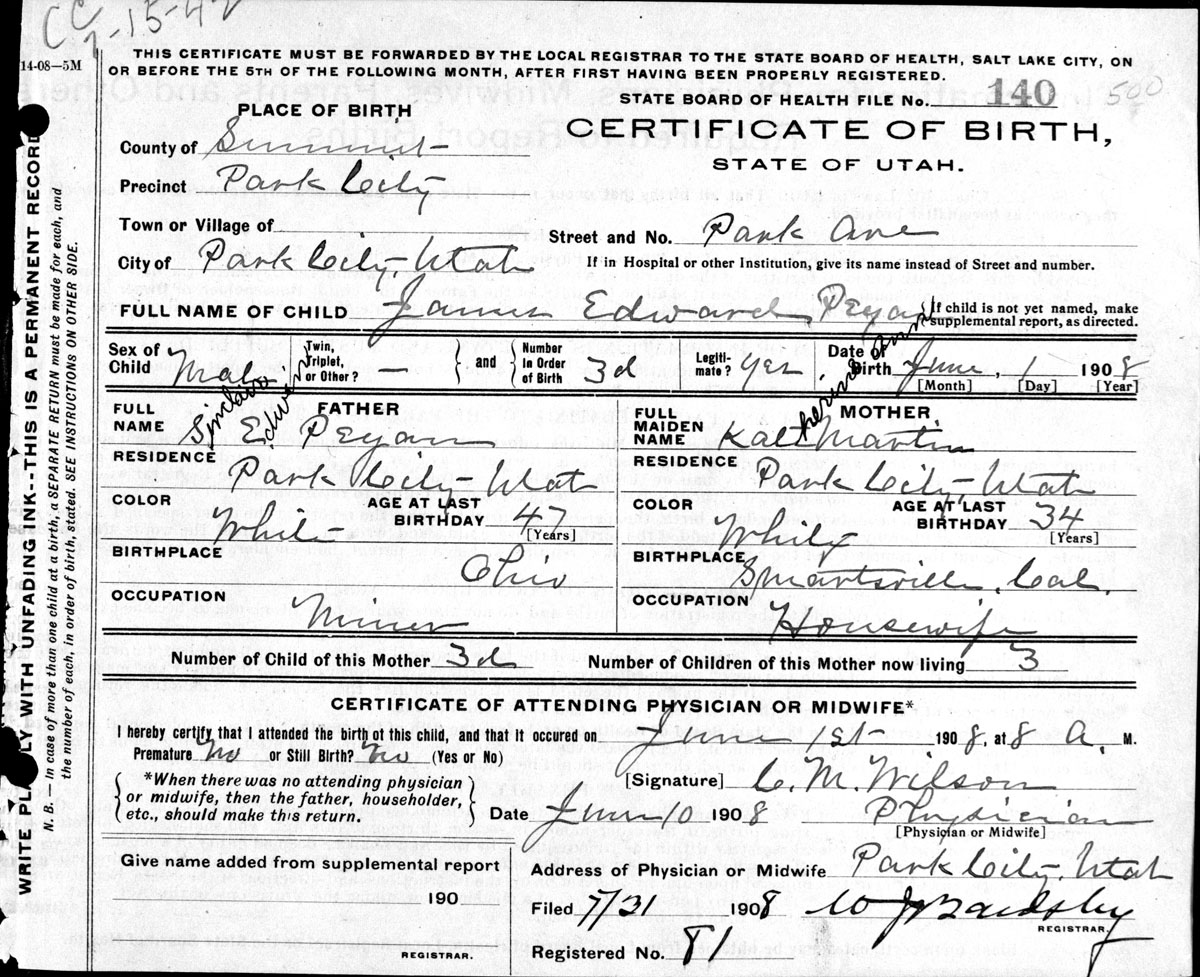 CC
7-15-42
14-08—5M
THIS CERTIFICATE MUST BE FORWARDED BY THE LOCAL REGISTRAR TO THE STATE BOARD OF HEALTH, SALT LAKE CITY, ON
OR BEFORE THE 5TH OF THE FOLLOWING MONTH, AFTER FIRST HAVING BEEN PROPERLY REGISTERED.
STATE BOARD OF HEALTH FILE No. 140 500
PLACE OF BIRTH
CERTIFICATE OF BIRTH,
STATE OF UTAH.
County of Summit
Precinct Park City
Town or Village of
Street and No. Park Ave
City of Park City, Utah
If in Hospital or other Institution, give its name instead of Street and number.
FULL NAME OF CHILD James Edward Ryan
If child is not yet named, make supplemental report, as directed.
Sex of Child Male
Twin, Triplet, or Other? —
and
Number In Order of Birth 3d
Legitimate? yes
Date of Birth June 1 1908
[Month] [Day] [Year]
FATHER
FULL NAME E Ryan
Edward
MOTHER
FULL MAIDEN NAME Kate Martin
therine Ann
RESIDENCE Park City Utah
RESIDENCE Park City, Utah
COLOR White
AGE AT LAST BIRTHDAY 47
[Years]
COLOR White
AGE AT LAST BIRTHDAY 34
[Years]
BIRTHPLACE Ohio
BIRTHPLACE Smartsville, Cal.
OCCUPATION Miner
OCCUPATION Housewife
Number of Child of this Mother 3d
Number of Children of this Mother now living 3
CERTIFICATE OF ATTENDING PHYSICIAN OR MIDWIFE*
I hereby certify that I attended the birth of this child, and that it occured on June 1st 1908, at 8 A. M.
Premature No or Still Birth? No (Yes or No)
*When there was no attending physician
or midwife, then the father, householder,
etc., should make this return.
[Signature] C. M. Wilson
Date June 10 1908 Physician
[Physician or Midwife]
Give name added from supplemental report
190
REGISTRAR.
Address of Physician or Midwife Park City, Utah
Filed 7/31 1908
REGISTRAR.
Registered No. 81
WRITE PLAINLY WITH UNFADING INK--THIS IS A PERMANENT RECORD
N. B.— In case of more than one child at a birth, a SEPARATE RETURN must be made for each, and
the number of each, in order of birth, stated. SEE INSTRUCTIONS ON OTHER SIDE.